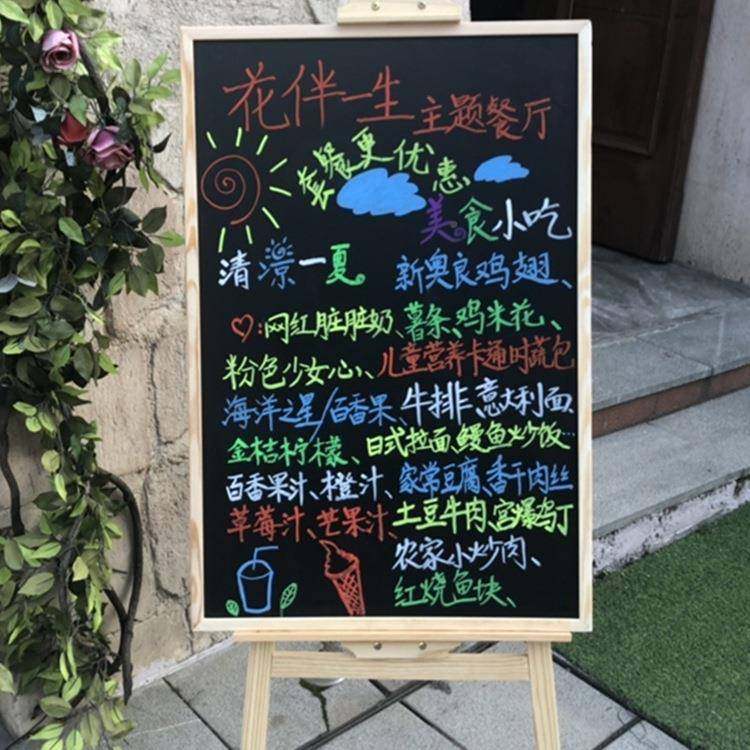 花伴一生主题餐厅
套餐更优惠
美食小吃
清凉一夏
新奥良鸡翅、
♡:网红脏脏奶、
薯条、鸡米花、
粉色少女心、
儿童营养卡通时蔬包
海洋之星/百香果、
牛排、意大利面
金桔柠檬、
日式拉面、鳗鱼炒饭…
百香果汁、橙汁、
家常豆腐、香干肉丝
草莓汁、芒果汁、
土豆牛肉、宫爆鸡丁
农家小炒肉、
红烧鱼块、